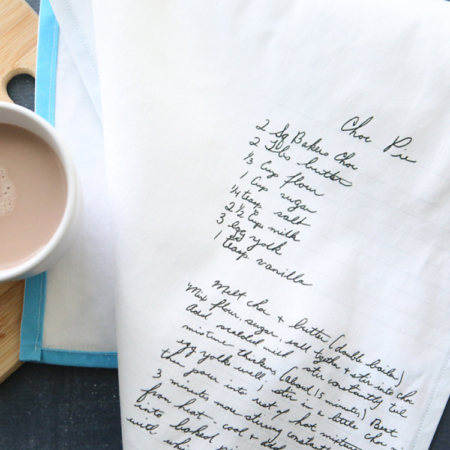 Choc Pie
2 Sq Bakers Choc
2 Tbs butter
1/3 Cup flour
1 Cup sugar
1/4 teasp salt
2 1/2 Cup milk
3 egg yolk
1 teasp vanilla
Melt choc + butter (double boiler)
Mix flour, sugar, salt tgeth + stir into choc
add scalded milk stir constantly til
mixture thickens (about 15 minutes) Beat
egg yolks well, stir in a little choc
then pour into rest of hot mixture
3 minutes more stirring constantly
from heat - cool + add
into baked pie
until